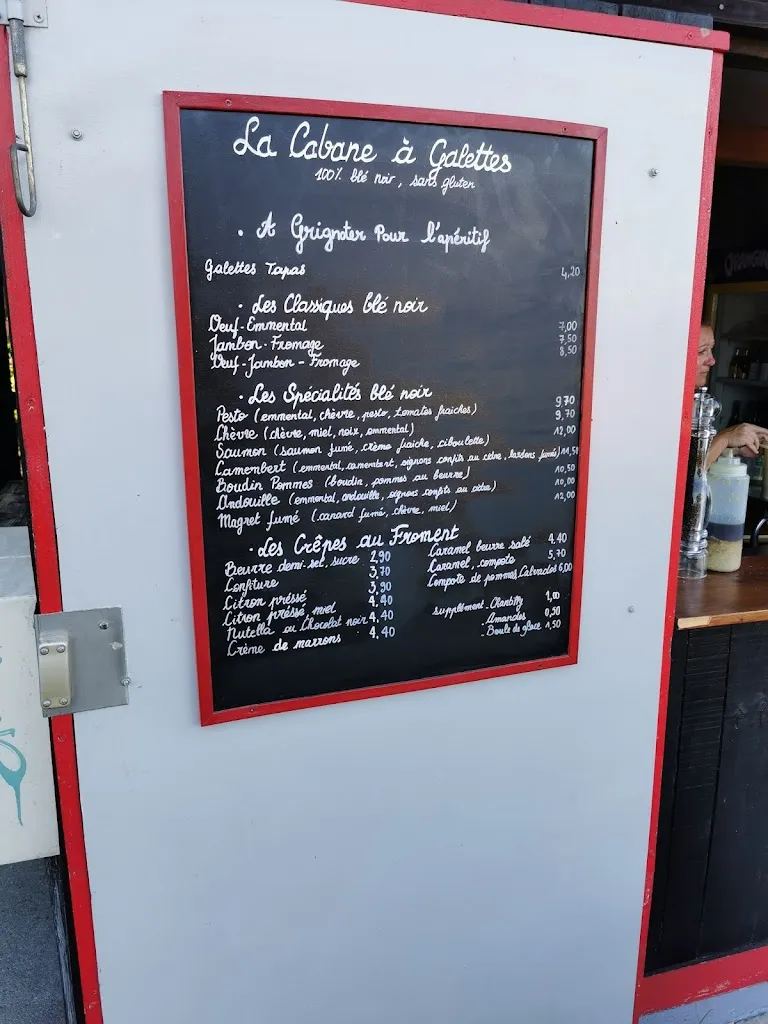 La Cabane à Galettes
100% blé noir, sans gluten
• A Grignoter Pour l'apéritif
Galettes Tapas 4,20
• Les Classiques blé noir
Oeuf-Emmental 7,00
Jambon-Fromage 7,50
Oeuf-Jambon-Fromage 8,50
• Les Spécialités blé noir
Pesto (emmental, chèvre, pesto, tomates fraîches) 9,70
Chèvre (chèvre, miel, noix, emmental) 9,70
Saumon (saumon fumé, crème fraîche, ciboulette) 12,00
Camembert (emmental, camembert, oignons confits au cidre, lardons fumés) 11,50
Boudin Pommes (boudin, pommes au beurre) 10,50
Andouille (emmental, andouille, oignons confits au cidre) 10,00
Magret fumé (canard fumé, chèvre, miel) 12,00
• Les Crêpes au Froment
Beurre demi-sel, sucre 2,90
Confiture 3,70
Citron préssé 3,90
Citron préssé, miel 4,40
Nutella ou Chocolat noir 4,40
Crème de marrons 4,40
Caramel beurre salé 4,40
Caramel, compote 5,70
Compote de pommes, Calvados 6,00
supplément. Chantilly 1,00
. Amandes 0,50
. Boule de glace 1,50